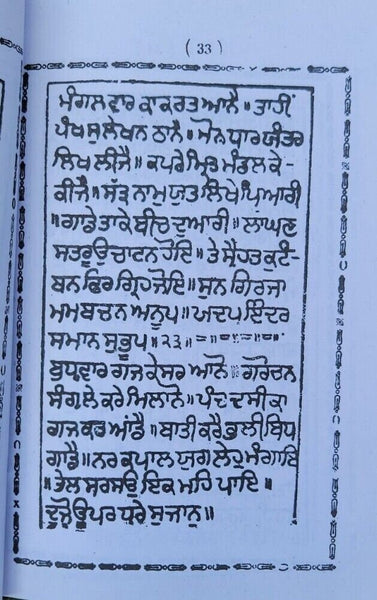 ( 33 )
ਮੰਗਲਵਾਰ ਕਾਕਰਤ ਆਨੈ ॥ ਤਾਤੀਂ
ਪੰਖ ਸੁ ਲੇਖਨ ਠਾਨੈ ॥ ਮੋਨ ਧਾਰ ਯੰਤਰ
ਲਿਖ ਲੀਜੈ ॥ ਕਪਰੇ ਮ੍ਰਿਤ ਮੰਡਲ ਕੇ-
ਕੀਜੈ ॥ ਸੱਤ੍ਰ ਨਾਮੁ ਯੁਤ ਲਿਖੇ ਪ੍ਰਿਆਰੀ
॥ ਗਾਡੇ ਤਾਕੇ ਬੀਚ ਦੁਆਰੀ ॥ ਲਾਘਣ
ਸਤਰੂ ਉਚਾਟਨ ਹੋਇ ॥ ਤੇ ਸੈਹਤ ਕੁਟੰ-
ਬਨ ਫਿਰ ਗ੍ਰਿਹ ਜੋਇ ॥ ਸੁਨ ਗਿਰਜਾ
ਮਮ ਬਚਨ ਅਨੂਪ ॥ ਅਦਪ ਇੰਦਰ
ਸਮਾਨ ਸੁਭੂਪ ॥੨੩॥ =॥=॥=॥=
ਬੁਧਵਾਰ ਗਜ ਕੇਸਰ ਆਨੋ ॥ ਗੋਰੋਚਨ
ਸੰਗ ਲੇ ਕਰੇ ਮਿਲਾਨੋ ॥ ਪੰਚ ਦਸੀ ਕਾ
ਗਜ ਕਰ ਆਂਡੈ ॥ ਬਾਤੀ ਕਰੈ ਭਲੀ ਬਿਧ
ਗਾਡੈ ॥ ਨਰ ਕਪਾਲ ਯੁਗ ਲੇਹੁ ਮੰਗਾਇ
॥ ਤੇਲ ਸਰਸਉ ਇਕ ਮਹਿ ਪਾਇ ॥
ਦੂਜੋ ਊਪਰ ਧਰੇ ਸੁਜਾਨੁ ॥